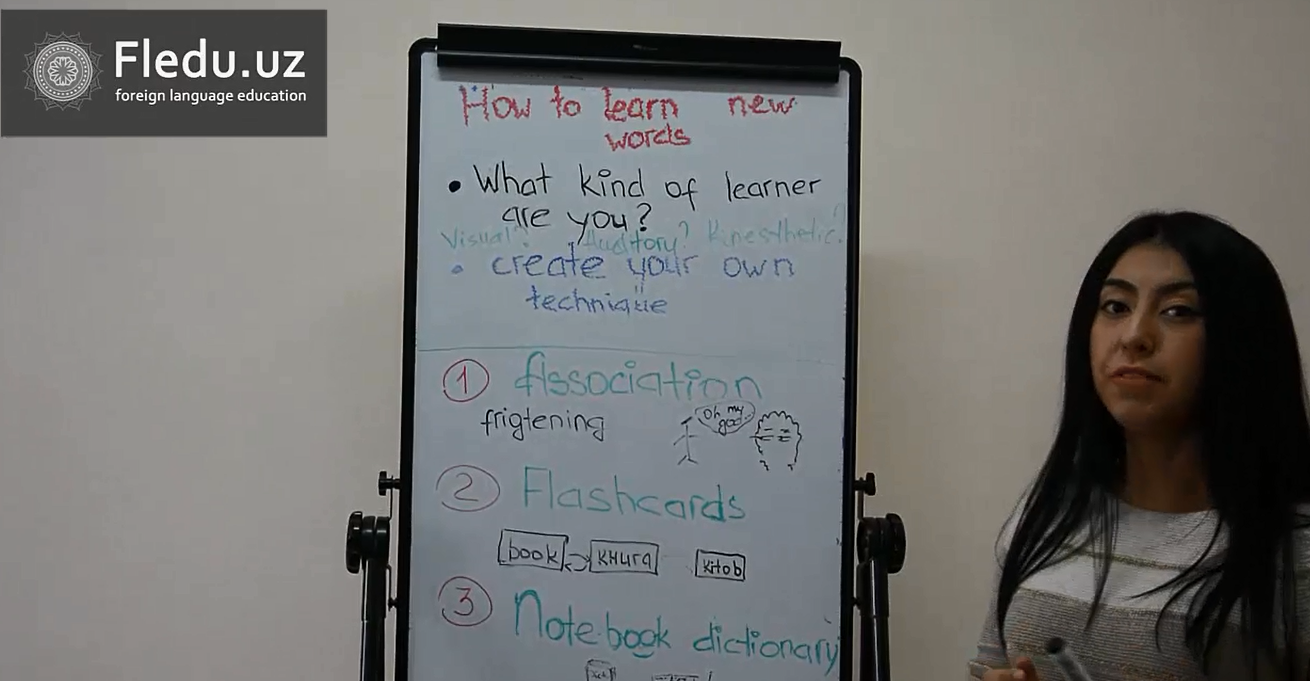 Fledu.uz
foreign language education
How to learn new
words
• What kind of learner
are you?
Visual? Auditory? Kinesthetic?
• create your own
technique
1 Association
frigtening
Oh my
god...
2 Flashcards
book книга kitob
3 Notebook dictionary